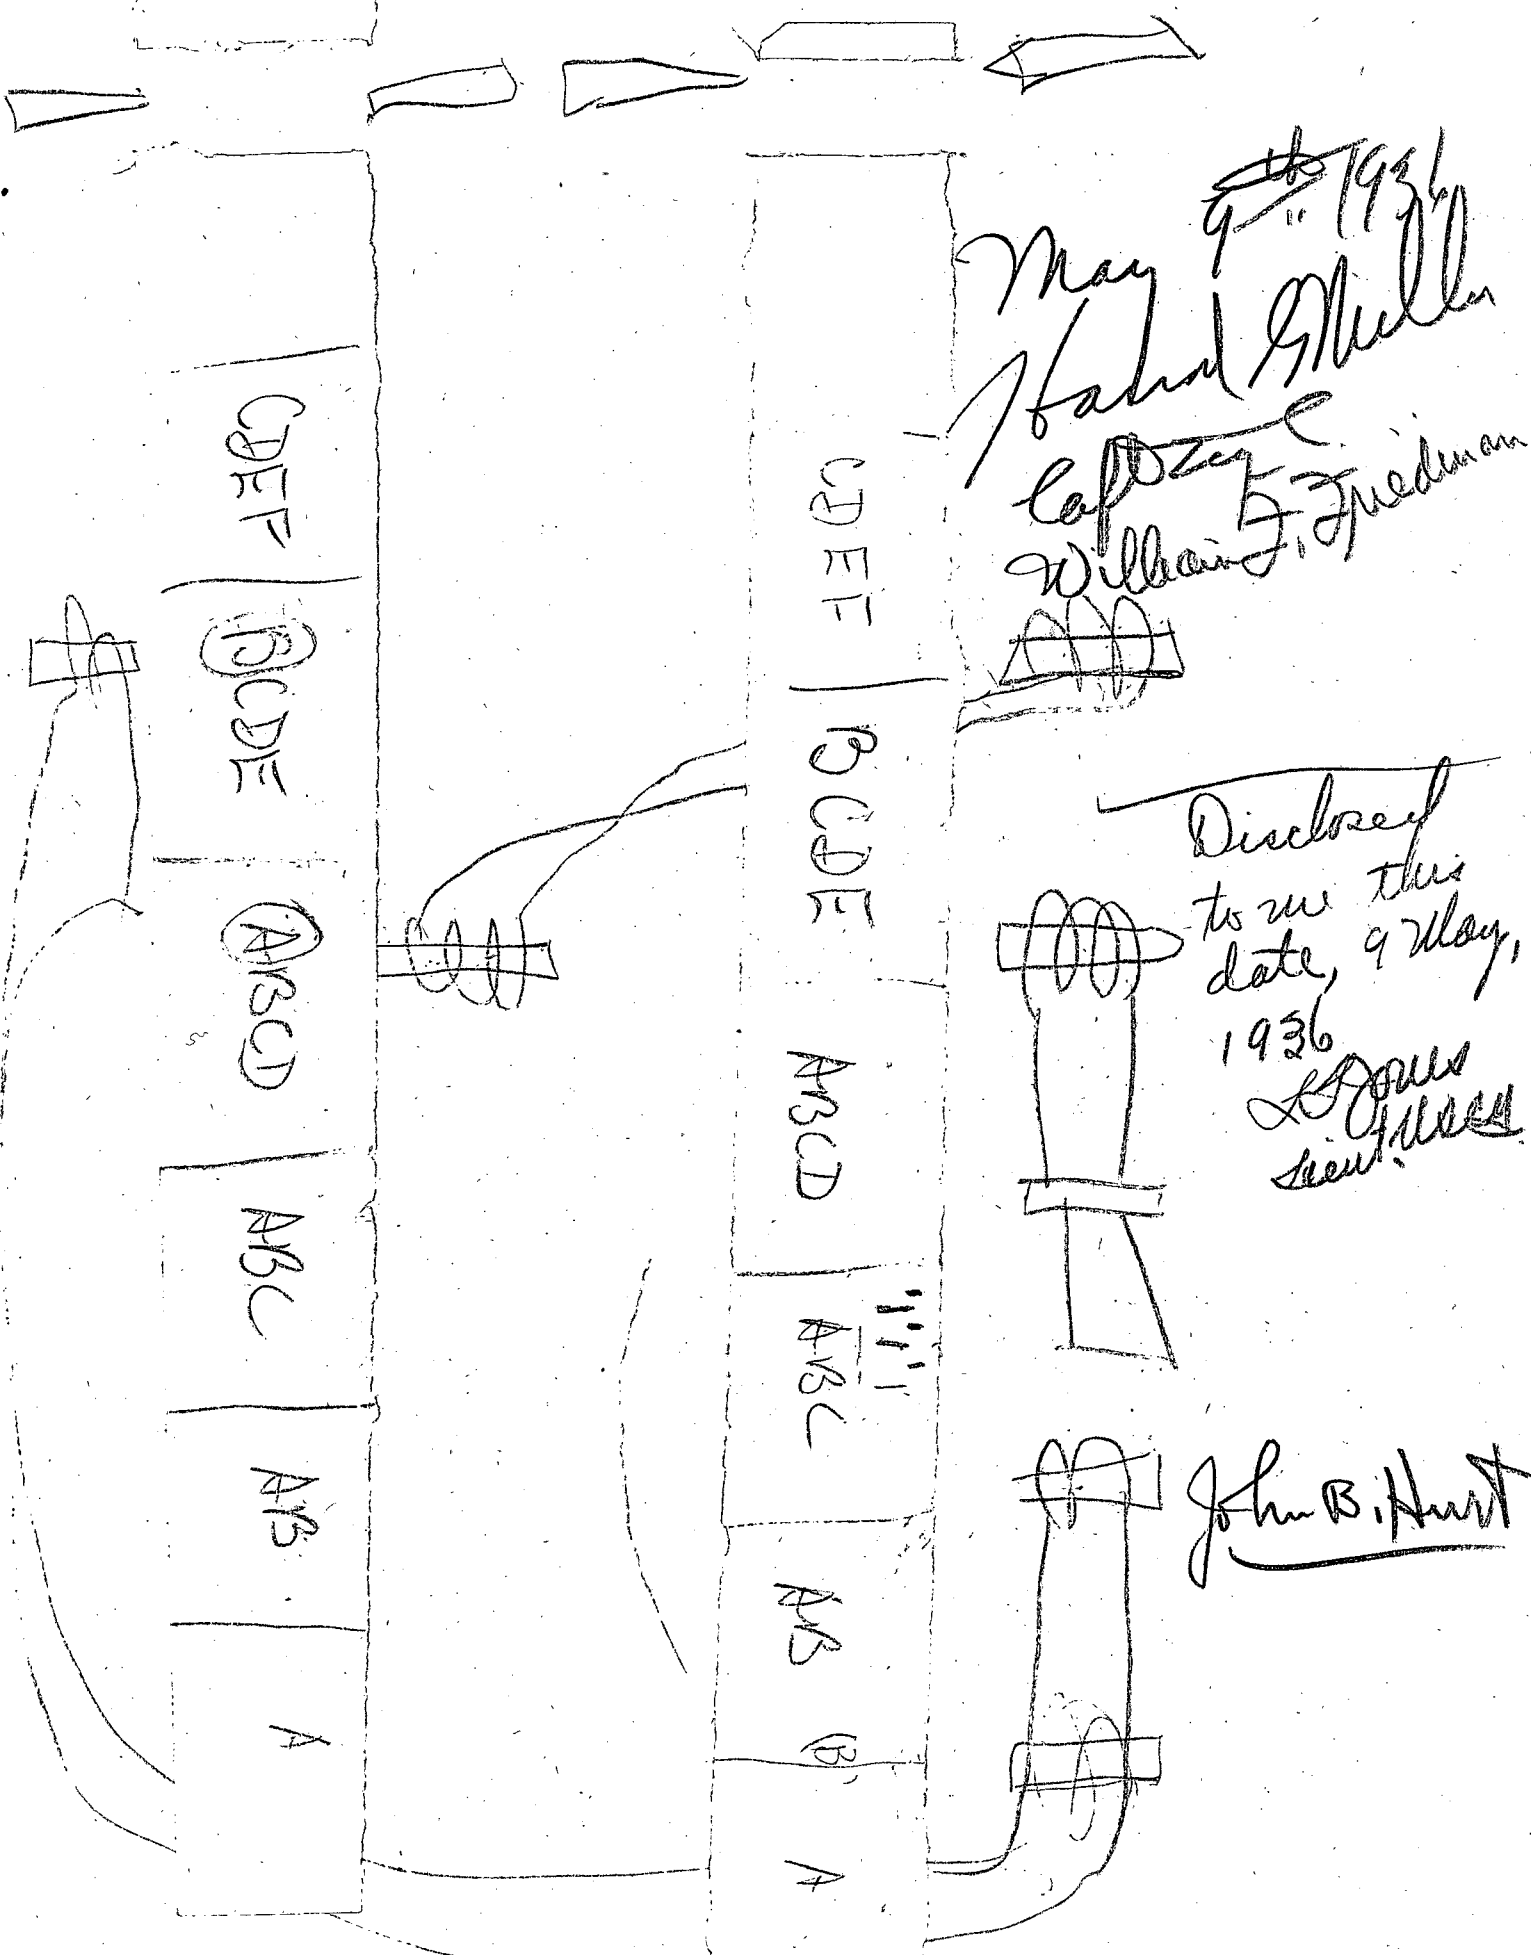 May 9th 1936
Harold G Miller
Capt
William F. Friedman
Disclosed
to me this
date, 9 May,
1936
Lieut.
John B. Hurt
CDEF
BCDE
ABCD
ABC
AB
A
CDEF
BCDE
ABCD
ABC
AB
B
A